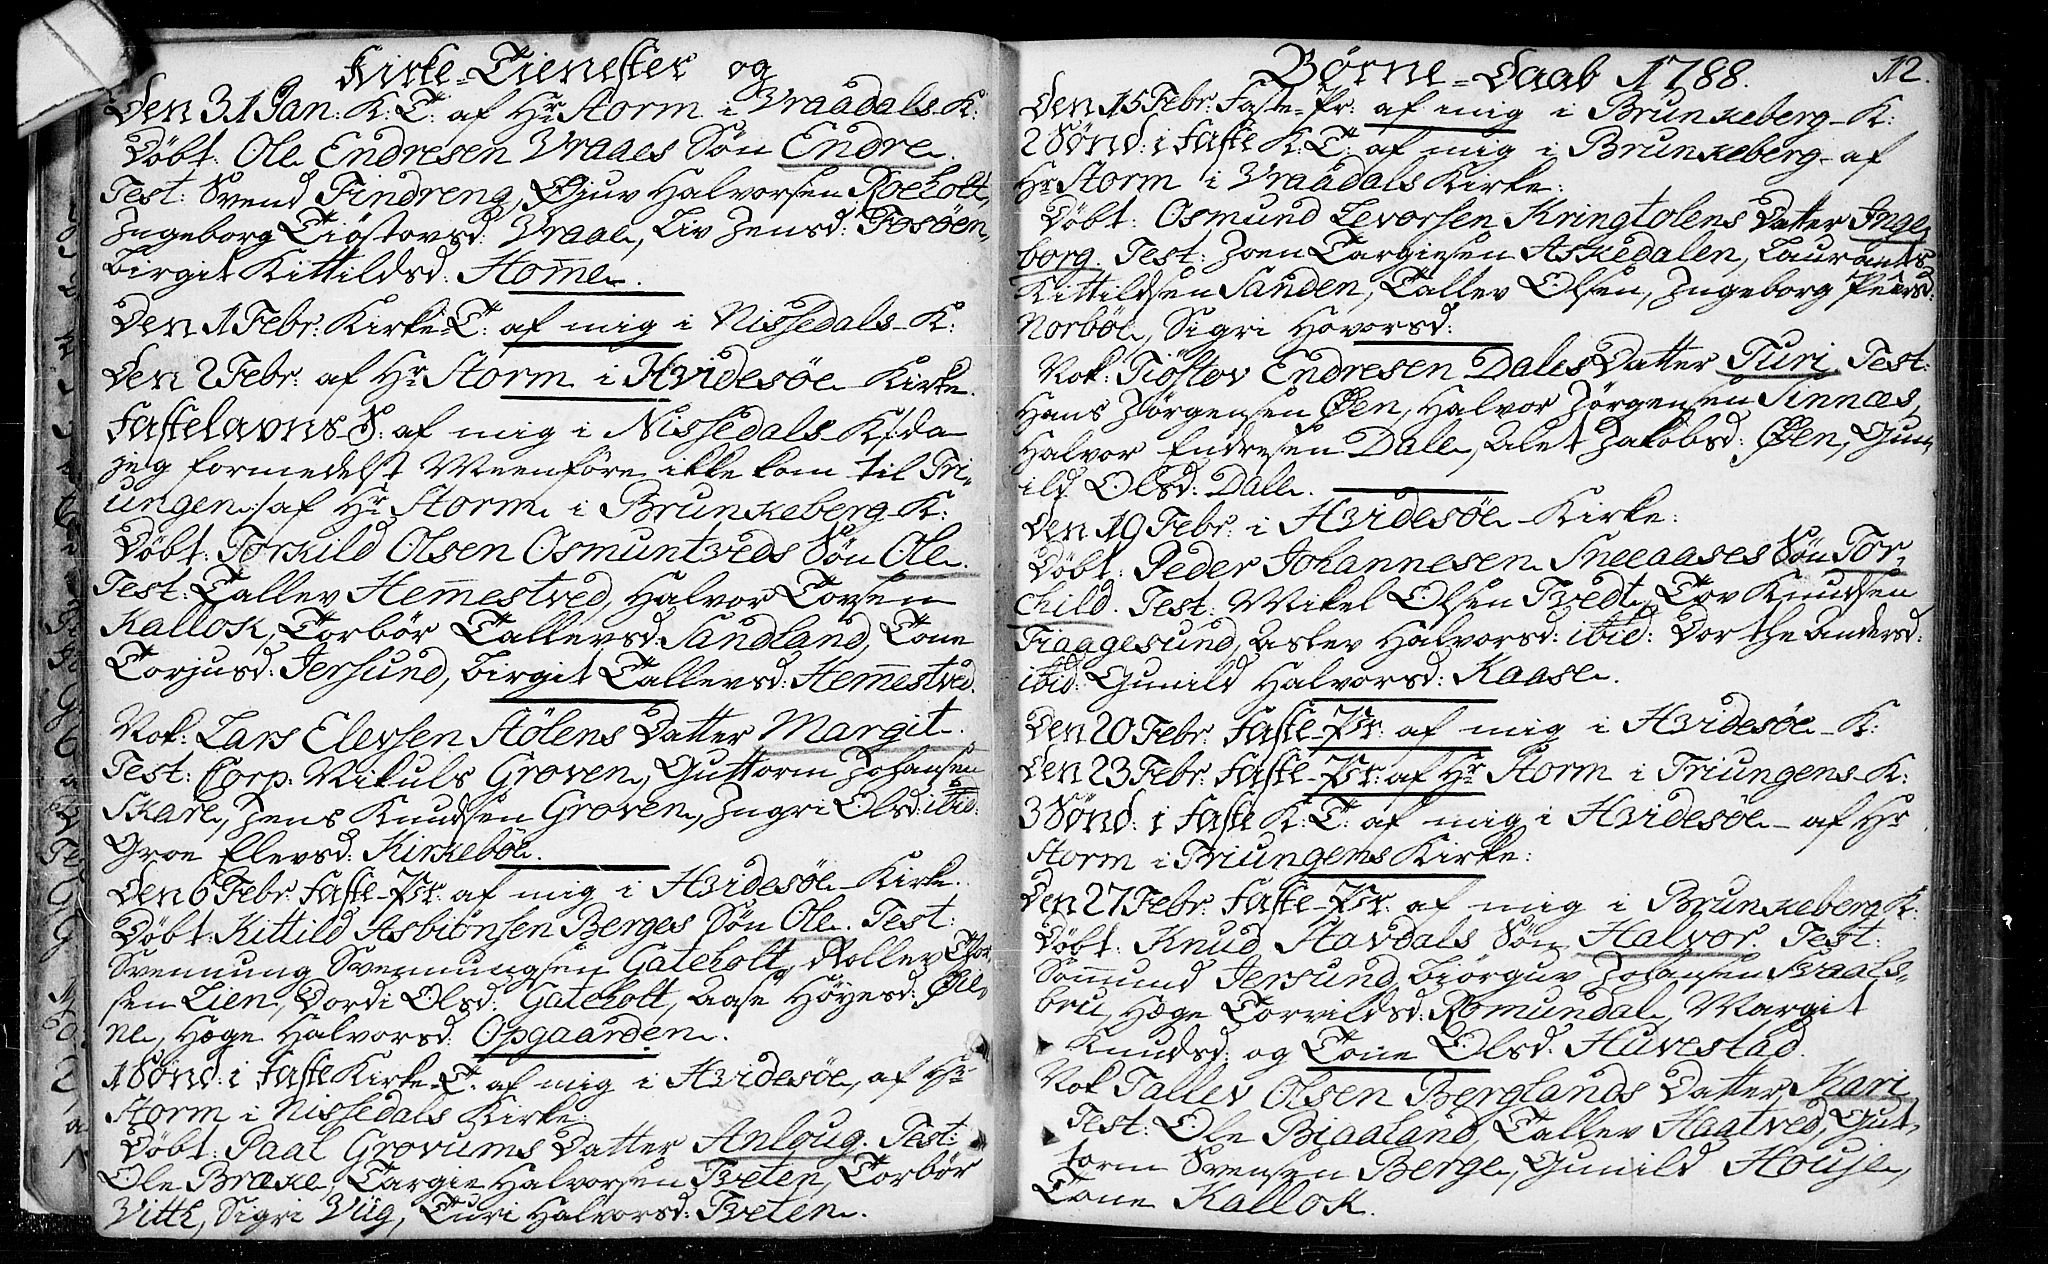 Kirke-Tienester og
Den 31 Jan: K: T: af Hr Storm i Vraadals K:
Döbt: Ole Endresen Vraaes Sön Endre.
Test: Svend Findreng, Gjuv Halvorsen Roeholt,
Ingeborg Tiöstovsd: Vraae, Liv Jensd: Fosöen,
Birgit Kittildsd: Home.
Den 1 Febr: Kirke T: af mig i Nissedals K:
Den 2 Febr: af Hr Storm i Hvidesöe Kirke.
Fastelavns S: af mig i Nissedals K /: da
jeg formedelst Meenföre ikke kom til Tri-
ungen :/ af Hr Storm i Brunkeberg K:
Döbt: Torkild Olsen Osmuntveds Sön Ole.
Test: Tallev Hemestved, Halvor Tovsen
Kallok, Torbör Tallevsd: Sandland, Tone
Torjusd: Jersund, Birgit Tallevsd: Hemestved.
Nok: Lars Elevsen Stölens Datter Margit.
Test: Corp: Nikuls Groven, Guttorm Johansen
Skare, Jens Knudsen Groven, Ingri Olsd: ibid:
Groe Elevsd: Kirkeböe.
Den 6 Febr: Faste-Pr: af mig i Hvidesöe Kirke.
Döbt: Kittild Asbiönsen Berges Sön Ole. Test:
Svennung Svennungsen Gateholt, Rollev Tor-
sen Lien, Dordi Olsd: Gateholt, Aase Höyesd: Öil-
ne, Hæge Halvorsd: Opgaarden.
1 Sönd: i Faste Kirke T. af mig i Hvidesöe, af Hr
Storm i Nissedals Kirke:
Döbt: Paal Grovums Datter Anloug. Test:
Ole Bræke, Targie Halvorsen Tveten, Torbör
Vitth, Sigri Viig, Turi Halvorsd: Tveten.
Börne-Daab 1788. 12.
Den 15 Febr: Faste-Pr: af mig i Brunkeberg K:
2 Sönd: i Faste K: T: af mig i Brunkeberg af
Hr Storm i Vraadals Kirke:
Döbt: Osmund Levorsen Kringtolens Datter Inge-
borg. Test: Joen Targiesen Askedalen, Laurants
Kittildsen Sanden, Tallev Olsen, Ingeborg Peersd:
Norböe, Sigri Hovorsd:
Nok: Tiöstov Endresen Dales Datter Turi. Test:
Hans Jörgensen Öen, Halvor Jörgensen Sinnæs,
Halvor Endresen Dale, Alet Jakobsd: Öen, Gun-
ild Olsd: Dale.
Den 19 Febr: i Hvidesöe Kirke:
Döbt: Peder Johannesen Sneeaases Sön Tor-
child. Test: Mikel Olsen Tvedt, Tov Knudsen
Fiaagesund, Aslev Halvorsd: ibid: Dorthe Andersd:
ibid: Gunild Halvorsd: Kaase.
Den 20 Febr: Faste-Pr: af mig i Hvidesöe K:
Den 23 Febr: Faste-Pr: af Hr Storm i Triungens K:
3 Sönd: i Faste K: T: af mig i Hvidesöe af Hr
Storm i Triungens Kirke:
Den 27 Febr: Faste-Pr: af mig i Brunkeberg K:
Döbt: Knud Stavdals Sön Halvor. Test:
Sömund Jersund, Björguv Johansen Kvaals-
bru, Hæge Torvildsd: Romundal, Margit
Knudsd: og Tone Olsd: Huvestad.
Nok Tallev Olsen Berglands Datter Kari
Test: Ole Biaaland, Tallev Haatved, Gut-
torm Svensen Berge, Gunild Houje,
Tone Kallok.